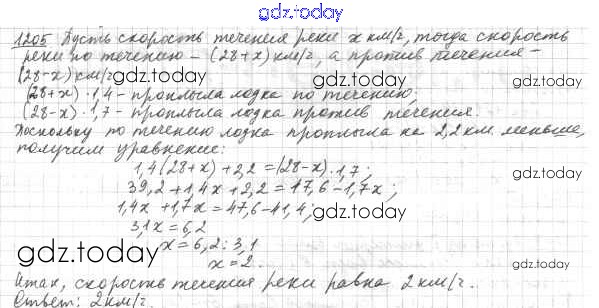 gdz.today
1205 Пусть скорость течения реки x км/г, тогда скорость
реки по течению – (28+x) км/г, а против течения –
(28-x) км/г. gdz.today gdz.today
(28+x) · 1,4 – проплыла лодка по течению,
(28-x) · 1,7 – проплыла лодка против течения.
Поскольку по течению лодка проплыла на 2,2 км меньше,
получим уравнение:
1,4(28+x) + 2,2 = (28-x) · 1,7;
39,2 + 1,4x + 2,2 = 17,6 - 1,7x;
1,4x + 1,7x = 47,6 - 41,4; gdz.today
3,1x = 6,2
gdz.today x = 6,2 : 3,1 gdz.today
x = 2.
Итак, скорость течения реки равна 2 км/г.
Ответ: 2 км/г.